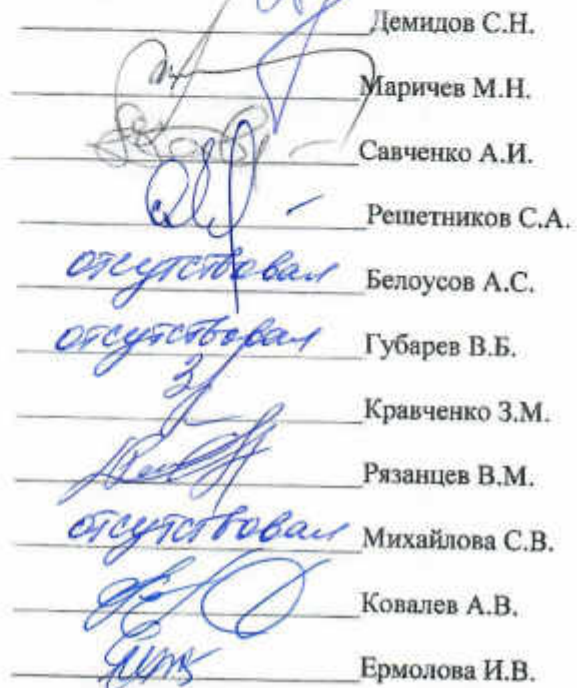 Демидов С.Н.
Маричев М.Н.
Савченко А.И.
Решетников С.А.
отсутствовал Белоусов А.С.
отсутствовал Губарев В.Б.
Кравченко З.М.
Рязанцев В.М.
отсутствовал Михайлова С.В.
Ковалев А.В.
Ермолова И.В.